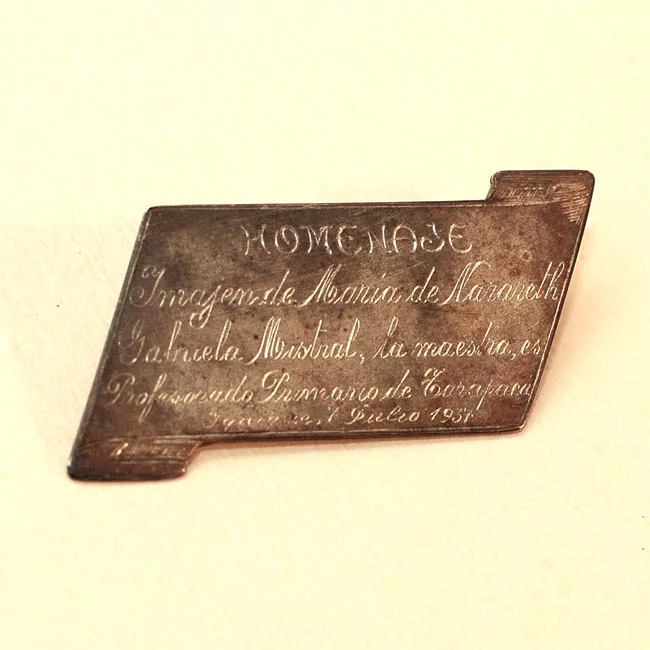 HOMENAJE
Imajen de Maria de Nazareth
Gabriela Mistral, la maestra, es
Profesorado Primario de Tarapaca
Iquique, 1 Julio 1937